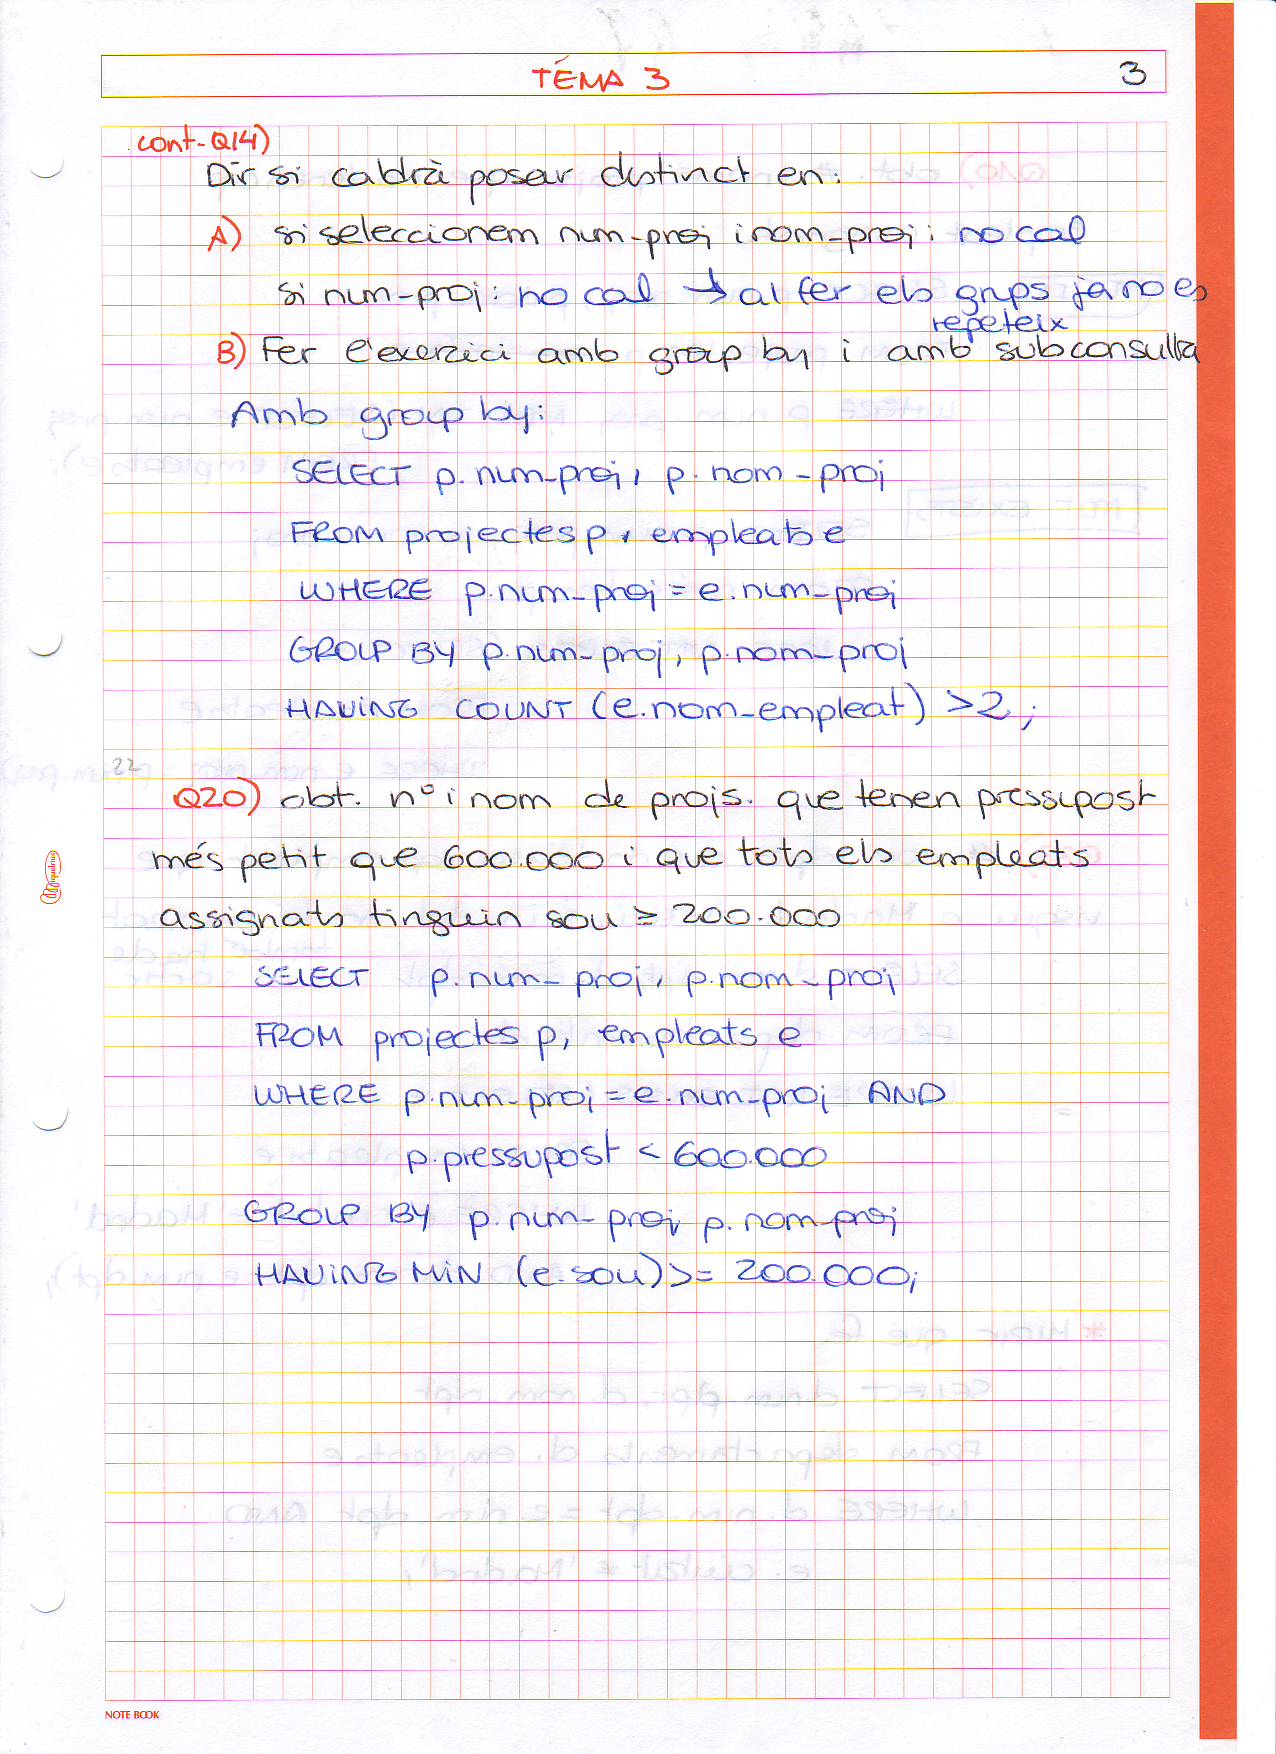 TEMA 3
3
cont-Q14)
Dir si caldrà posar distinct en:
A) si seleccionem num-proj i nom-proj: no cal
si num-proj: no cal → al fer els grups ja no es
repeteix
B) Fer l'exercici amb group by i amb subconsulta
Amb group by:
SELECT p.num-proj, p.nom-proj
FROM projectes p, empleats e
WHERE p.num-proj = e.num-proj
GROUP BY p.num-proj, p.nom-proj
HAVING COUNT (e.nom-empleat) >2;
22
Q20) obt. nº i nom de projs. que tenen pressupost
més petit que 600.000 i que tots els empleats
assignats tinguin sou ≥ 200.000
SELECT p.num-proj, p.nom-proj
FROM projectes p, empleats e
WHERE p.num-proj = e.num-proj AND
p.pressupost < 600.000
GROUP BY p.num-proj, p.nom-proj
HAVING MIN (e.sou) >= 200.000;
NOTE BOOK